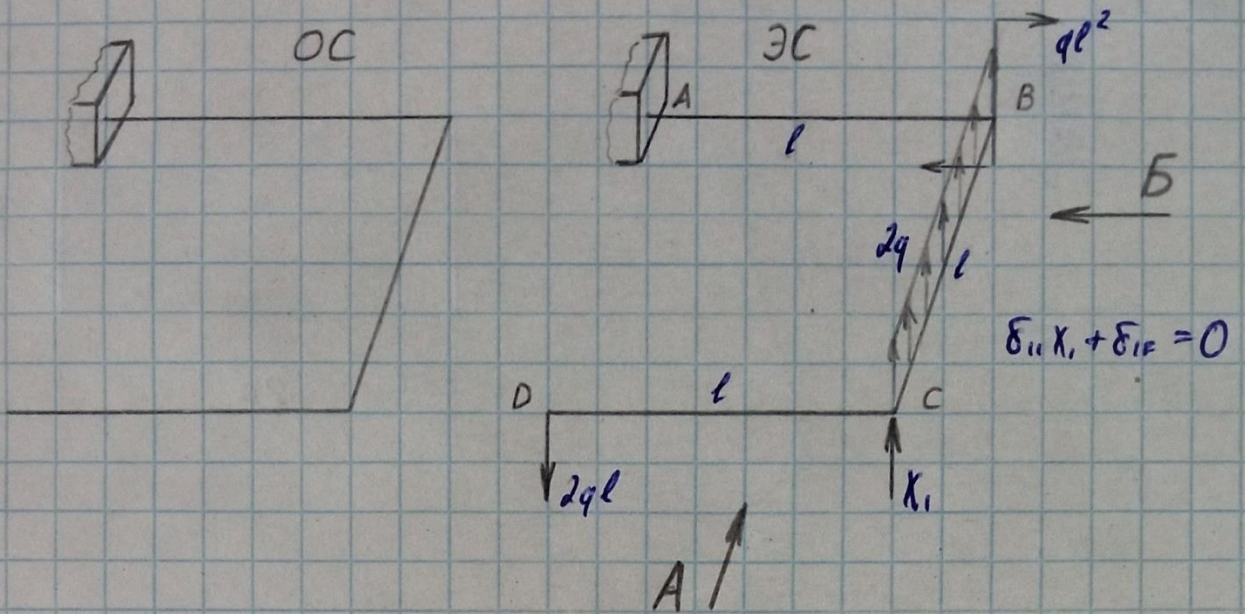 ОС
ЭС
ql²
A
B
l
Б
2q
l
δ₁₁X₁ + δ₁F = 0
D
l
C
2ql
X₁
А